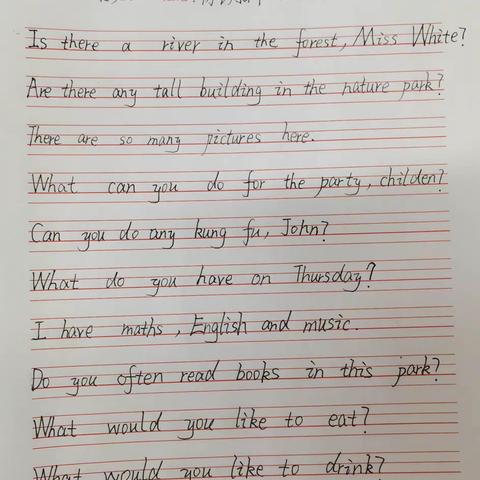 Is there a river in the forest, Miss White?
Are there any tall building in the nature park?
There are so many pictures here.
What can you do for the party, childen?
Can you do any kung fu, John?
What do you have on Thursday?
I have maths, English and music.
Do you often read books in this park?
What would you like to eat?
What would you like to drink?